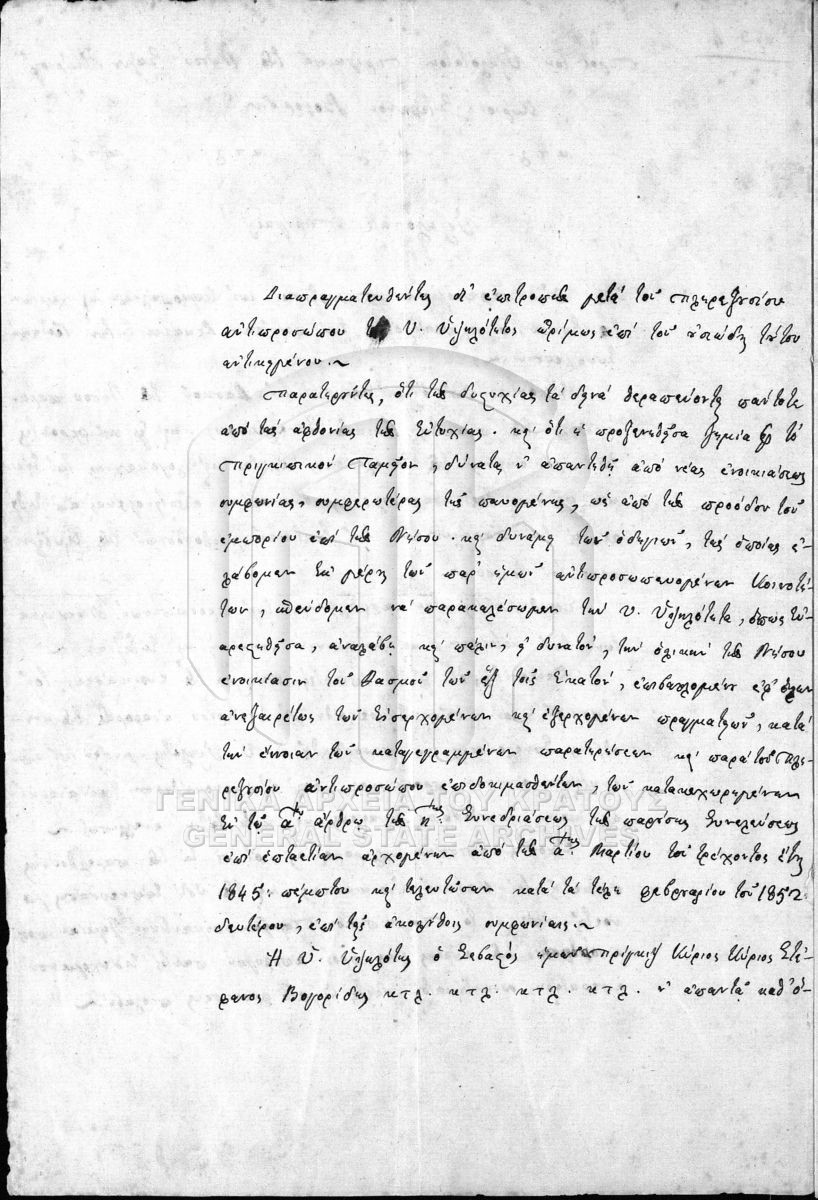 Διαπραγματευθέντες οἱ ἐπίτροποι μετὰ τοῦ πληρεξουσίου
ἀντιπροσώπου τῆς Υ. Ὑψηλότητος ὡρίμως ἐπὶ τοῦ οὐσιώδους τούτου
ἀντικειμένου.~
Παρατηροῦντες, ὅτι τῆς δυστυχίας τὰ δεινὰ θεραπεύονται πάντοτε
ἀπὸ τὰς ἀφθονίας τῆς Εὐτυχίας. καὶ ὅτι ἡ προξενηθεῖσα ζημία εἰς τὸ
Πριγκιπικὸν Ταμεῖον, δύναται ν' ἀπαντηθῇ ἀπὸ νέας ἐνοικιάσεως
συμφωνίας, συμφερωτέρας τῆς παυομένης, ὡς ἀπὸ τῆς προόδου τοῦ
ἐμπορίου ἐπὶ τῆς Νήσου. καὶ δυνάμει τῶν ὁδηγιῶν, τὰς ὁποίας ἐ-
λάβομεν ἐκ μέρους τῶν παρ' ἡμῶν ἀντιπροσωπευομένων Κοινοτή-
των, σπεύδομεν νὰ παρακαλέσωμεν τὴν Υ. Ὑψηλότητα, ὅπως εὐ-
αρεστηθεῖσα, ἀναλάβῃ καὶ πάλιν, εἰ δυνατόν, τὴν ὁλικὴν τῆς Νήσου
ἐνοικίασιν τοῦ δασμοῦ τῶν ἓξ τοῖς ἑκατόν, ἐπιβαλλομένου ἐφ' ὅλων
ἀνεξαιρέτως τῶν εἰσερχομένων καὶ ἐξερχομένων πραγματειῶν, κατὰ
τὴν ἔννοιαν τῶν καταγεγραμμένων παρατηρήσεων καὶ παρὰ τοῦ Πλη-
ρεξουσίου ἀντιπροσώπου ἐπιδοκιμασθέντων, τῶν κατακεχωρημένων
ἐν τῷ α:ῳ ἄρθρῳ τῆς η:ης Συνεδριάσεως τῆς παρούσης Συνελεύσεως
ἐπὶ ἑπταετίαν ἀρχομένην ἀπὸ τῆς α:ης Μαρτίου τοῦ τρέχοντος ἔτους
1845: πέμπτου καὶ τελευτῶσαν κατὰ τὰ τέλη φεβρουαρίου τοῦ 1852:
δευτέρου, ἐπὶ ταῖς ἀκολούθοις συμφωνίαις.~
Ἡ Υ. Ὑψηλότης ὁ Σεβαστὸς ἡμῶν Πρίγκιψ Κύριος Κύριος Στέ-
φανος Βογορίδης κτλ. κτλ. κτλ. κτλ. ν' ἀπαντᾷ καθ' ὅ-
ΓΕΝΙΚΑ ΑΡΧΕΙΑ ΤΟΥ ΚΡΑΤΟΥΣ
GENERAL STATE ARCHIVES